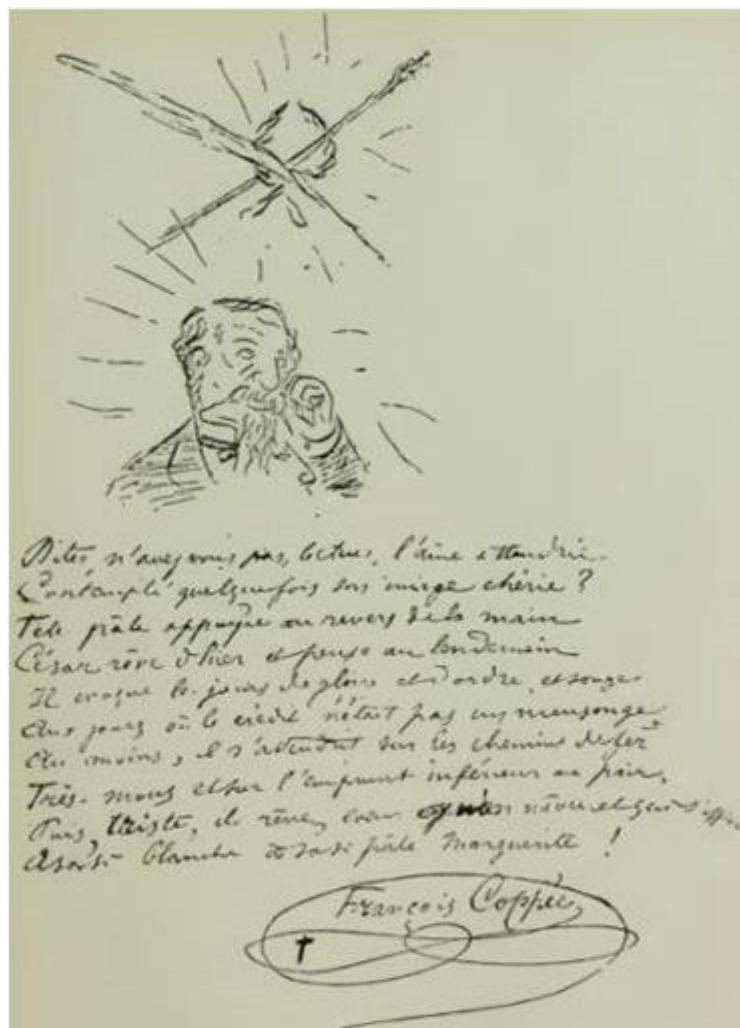 Dites, n'avez-vous pas, lecteurs, l'âme attendrie
Contemplé quelquefois son image chérie ?
Tête pâle appuyée au revers de la main
César rêve d'hier et pense au lendemain
Il évoque les jours de gloire et d'ordre, et songe
Aux jours où le crédit n'était pas un mensonge
Au moins, il s'attendrit sur les chemins de fer
Très mous et sur l'emprunt inférieur au pair,
Puis, triste, il rêve, cœur qu'un
à sa si blanche à sa si pâle Marguerite !
François Coppée